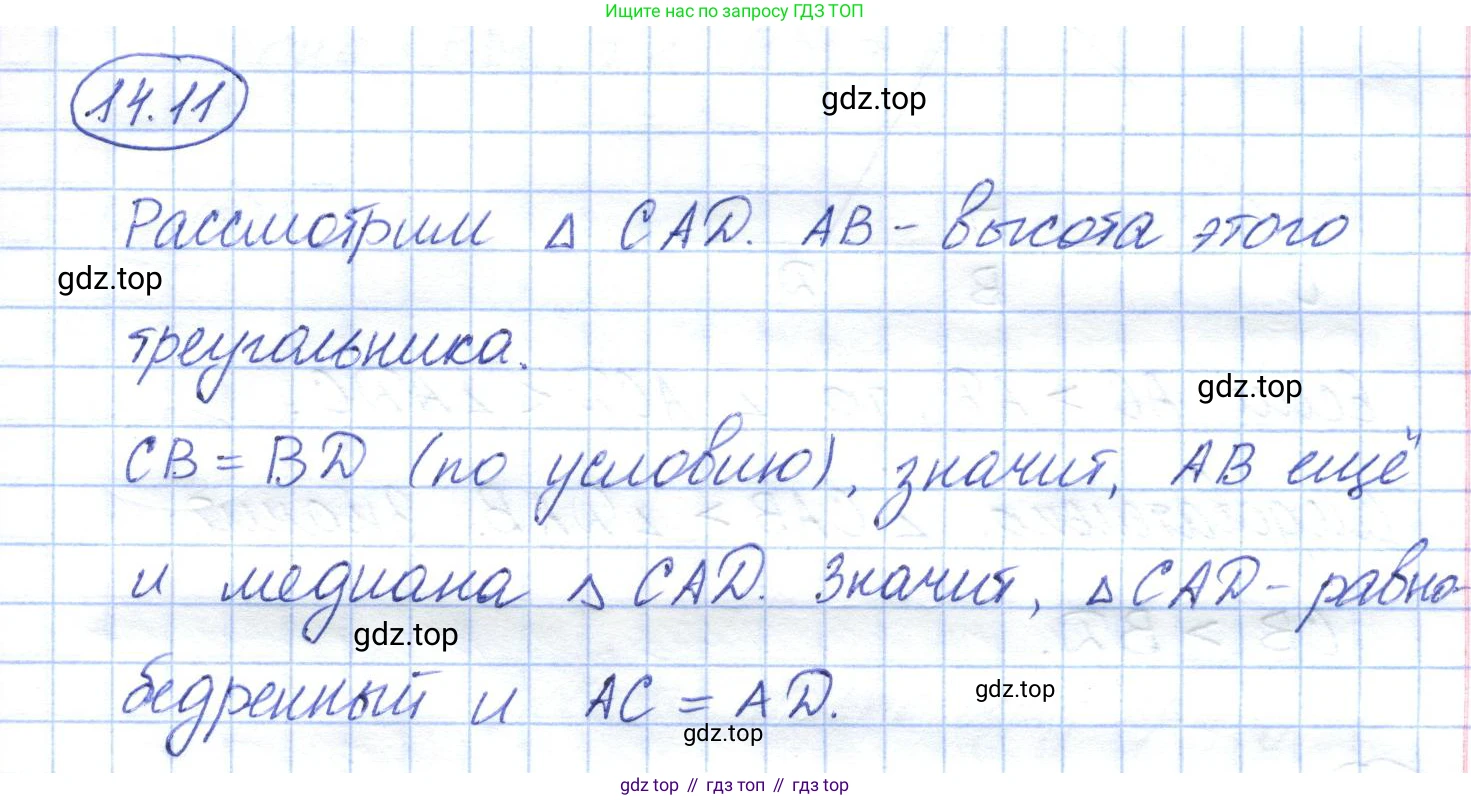 Ищите нас по запросу ГДЗ ТОП
14.11
gdz.top
Рассмотрим Δ CAD. AB - высота этого
gdz.top
треугольника.
gdz.top
CB = BD (по условию), значит, AB ещё
и медиана Δ CAD. Значит, Δ CAD - равно-
gdz.top
бедренный и AC = AD.
gdz.top
gdz.top
gdz top // гдз топ // gdz top